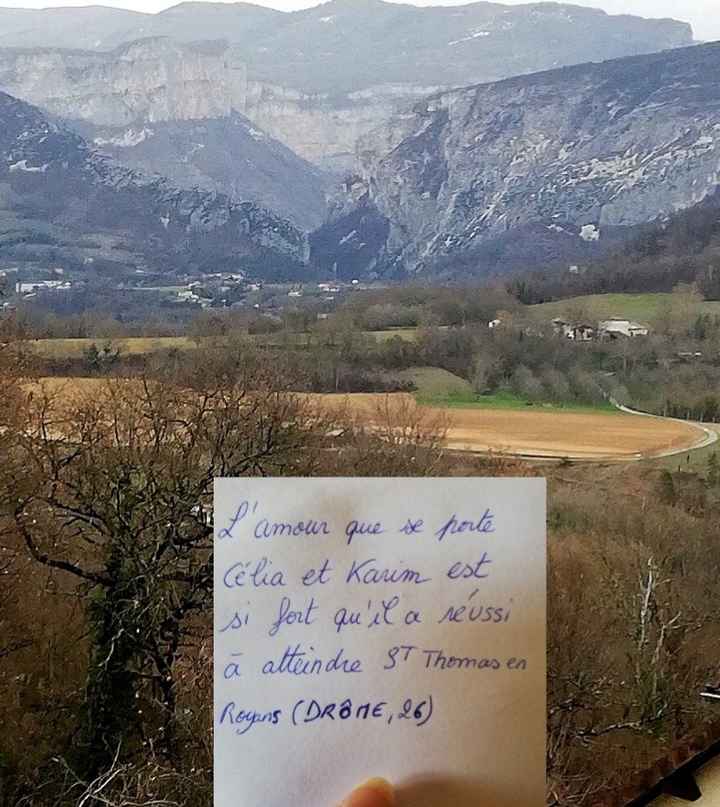 L'amour que se porte
Célia et Karim est
si fort qu'il a réussi
à atteindre ST Thomas en
Royans (DRÔME, 26)